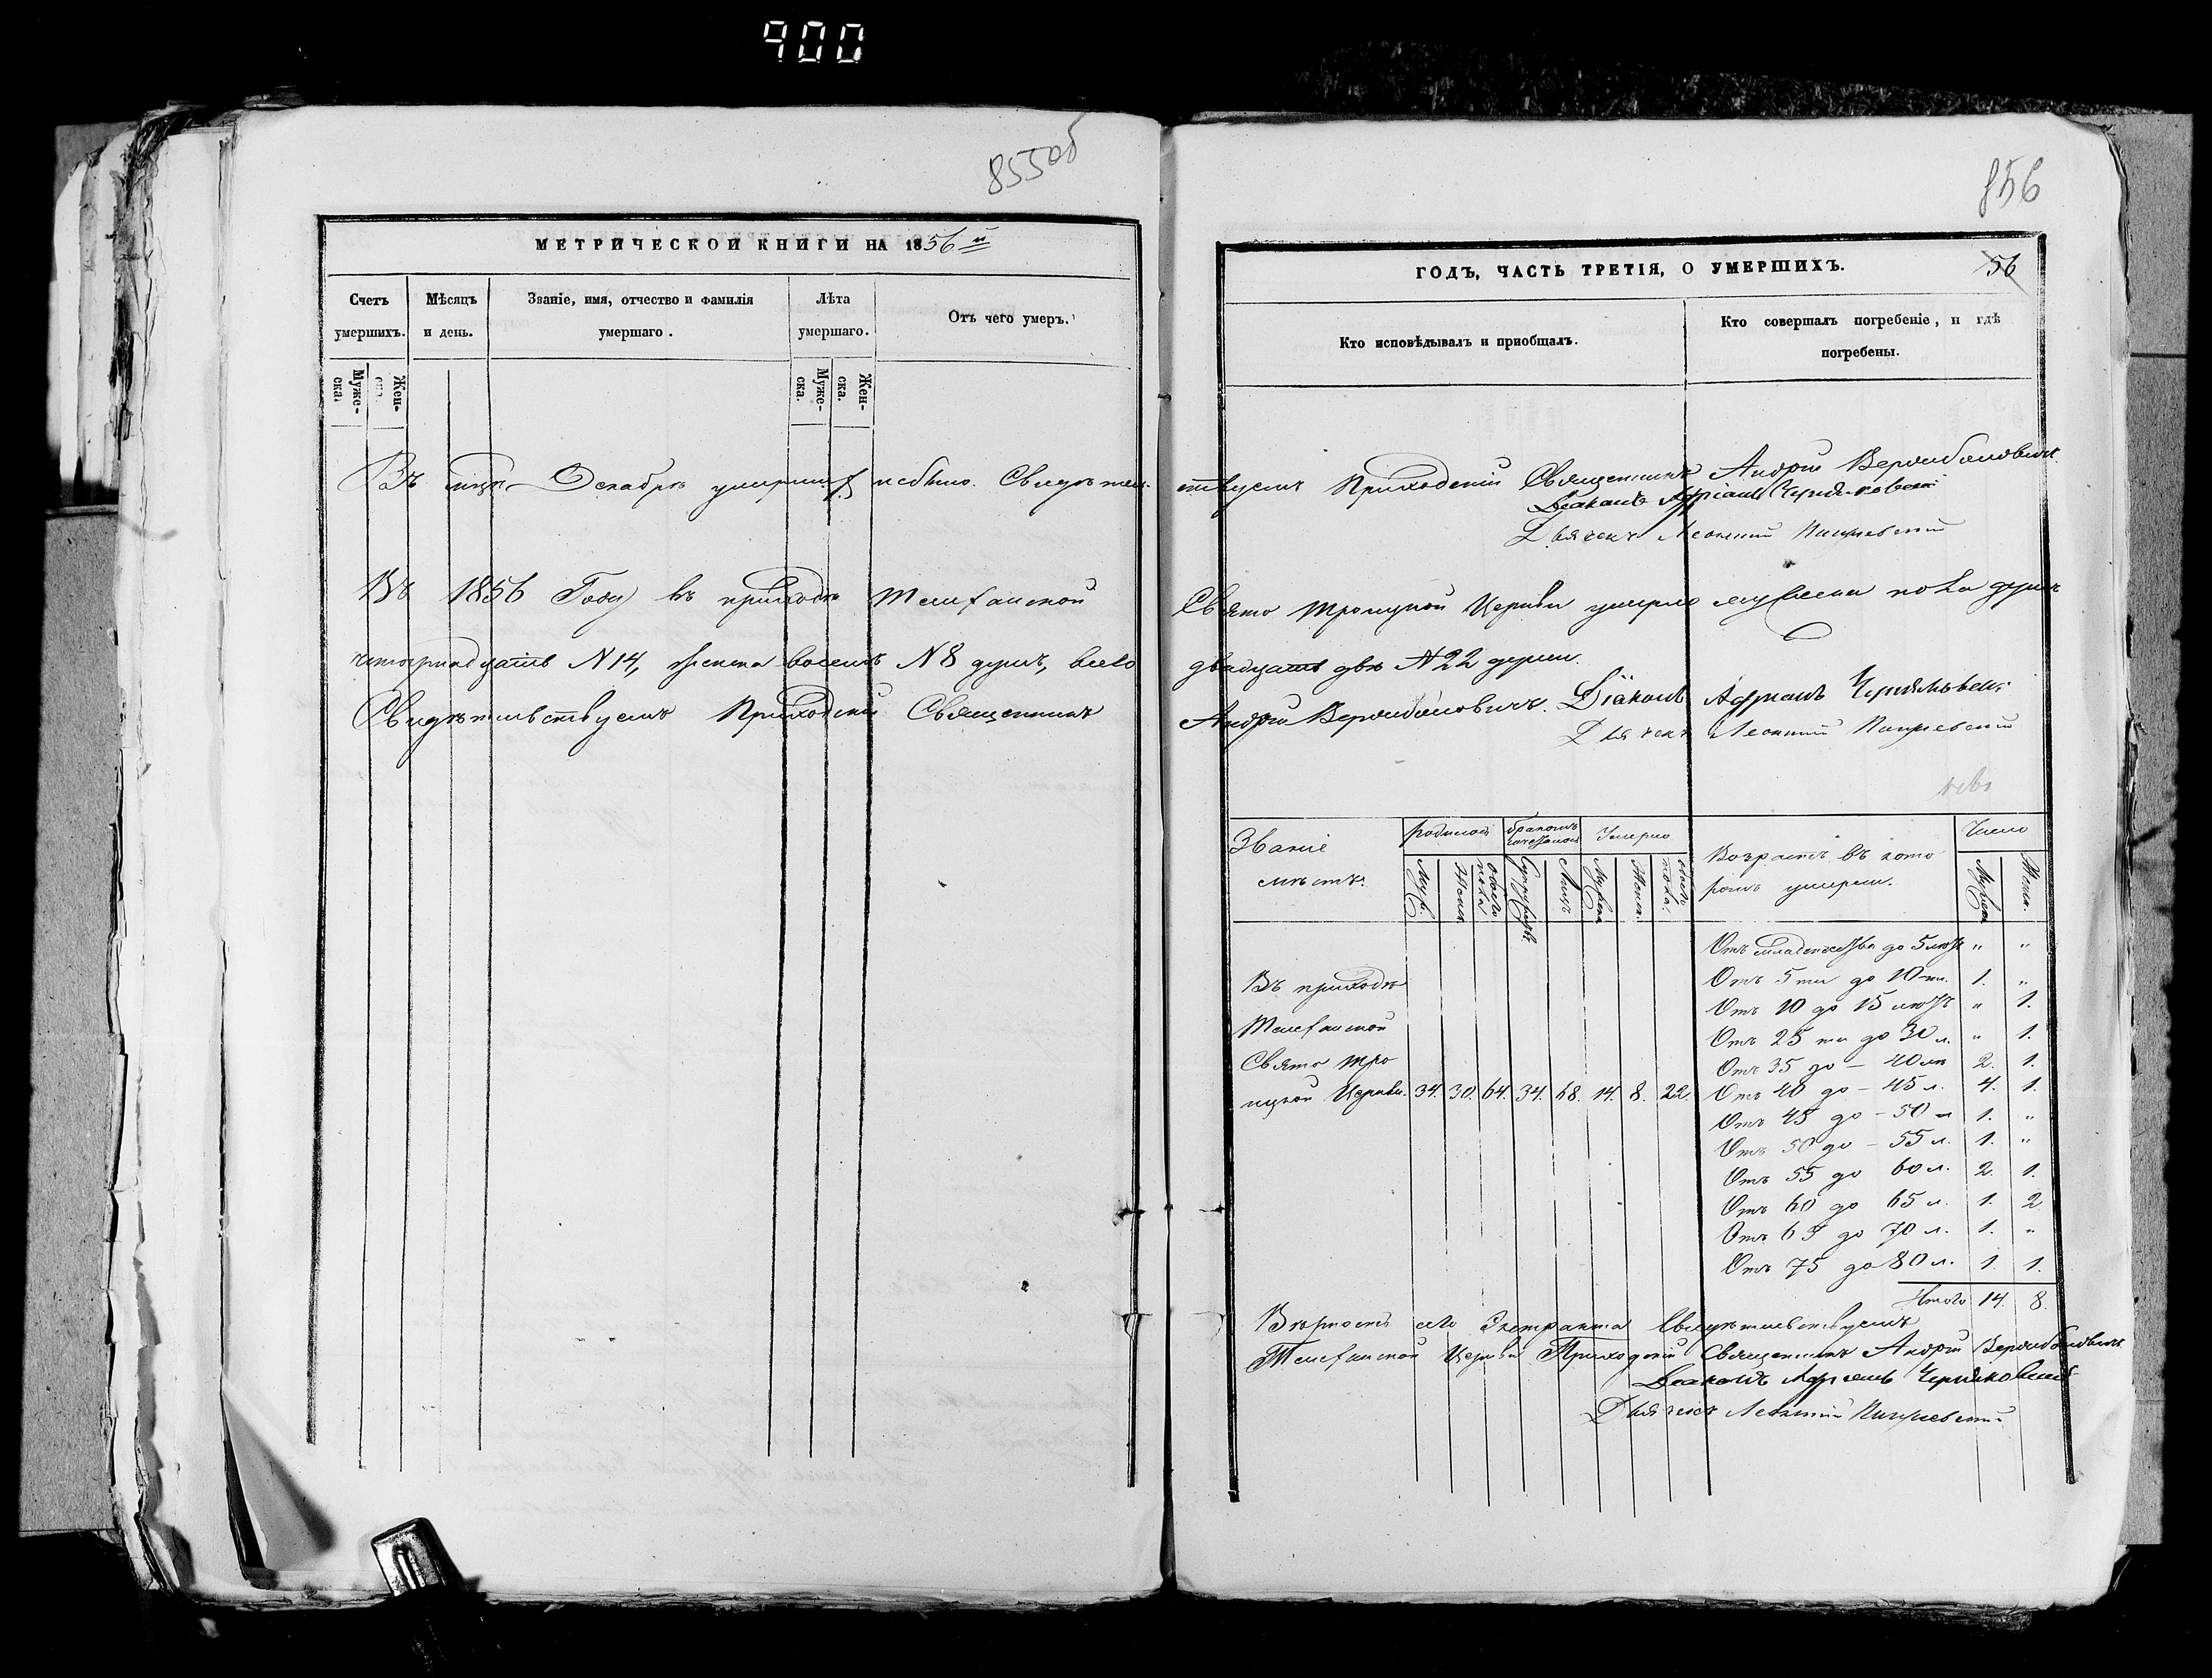 900
855об
МЕТРИЧЕСКОЙ КНИГИ НА 1856й
Счетъ умершихъ.
Мужеска.
Женска.
Мѣсяцъ и день.
Званіе, имя, отчество и фамилія умершаго.
Лѣта умершаго.
Мужеска.
Женска.
Отъ чего умеръ.
Въ Декабрѣ умершихъ небыло. Свидѣтель-
Въ 1856 Году въ приходѣ
четырнадцать N 14, женска восемь N 8 душъ, всего
Свидѣтельствуемъ Приходскій Священникъ
856
ГОДЪ, ЧАСТЬ ТРЕТІЯ, О УМЕРШИХЪ.
56
Кто исповѣдывалъ и пріобщалъ.
Кто совершалъ погребеніе, и гдѣ погребены.
ствуемъ Приходскій Священникъ Андрей
Діаконъ Адріанъ
Дьячекъ Леонтий
Свято Троицкой Церкви умерло мужеска пола душъ
двадцать двѣ N 22 души.
Андрей Діаконъ Адріанъ
Дьячекъ Леонтий
Званіе мѣстъ.
родилось
Муж.
Женск.
обоего пола
бракомъ
Супружествъ
Лицъ
Умерло
Мужеск.
Женск.
обоего пола
Возрастъ въ которомъ умерли.
Число
Мужеск.
Женск.
Въ приходѣ
Свято Тро
ицкой Церкви. 34. 30. 64. 34. 68. 14. 8. 22.
Отъ младенчества до 5 лѣтъ " "
Отъ 5 ти до 10 ти. 1. "
Отъ 10 до 15 лѣтъ " 1.
Отъ 25 ти до 30 л. " 1.
Отъ 35 до – 40 лѣ 2. 1.
Отъ 40 до – 45 л. 4. 1.
Отъ 45 до – 50 л 1. "
Отъ 50 до – 55 л. 1. "
Отъ 55 до 60 л. 2. 1.
Отъ 60 до 65 л. 1. 2
Отъ 65 до 70 л. 1. "
Отъ 75 до 80 л. 1. 1.
Итого 14. 8.
Вѣрность сего Экстракта Свидѣтельствуемъ
Церкви Приходскій Священникъ Андрей
Діаконъ Адріанъ
Дьячекъ Леонтий